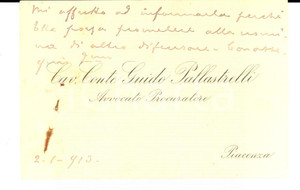 Mi affretto ad informarla perchè
Ella possa promettere alla nomi
na di altro difensore. Con osse
quio Suo
Cav. Conte Guido Pallastrelli
Avvocato Procuratore
2-1-913 Piacenza